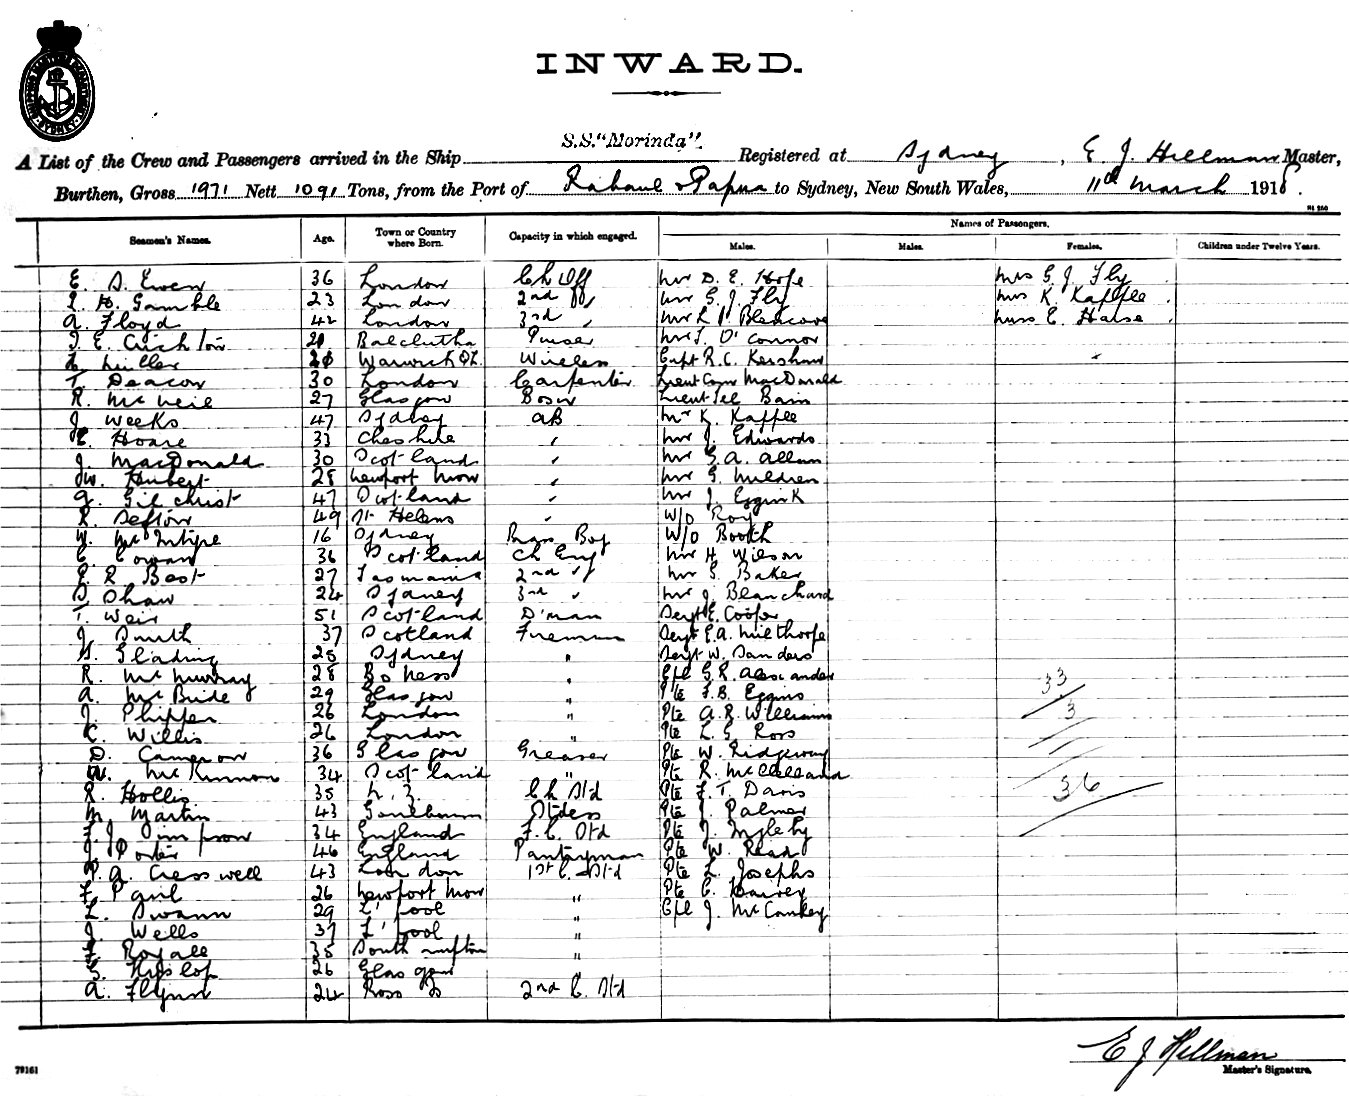 INWARD.
A List of the Crew and Passengers arrived in the Ship S.S."Morinda". Registered at Sydney, E. J. Hillman Master,
Burthen, Gross 1971 Nett 1091 Tons, from the Port of Rabaul & Papua to Sydney, New South Wales, 11th March 1918.
Seamen's Names. Age. Town or Country where Born. Capacity in which engaged. Names of Passengers.
Males. Males. Females. Children under Twelve Years.
E. S. Ewen 36 London Ch Off Mr D. E. Hope Mrs G. J. Fly
H. Gamble 23 London 2nd Mr G. J. Fly Mrs K. Kapelle
A. Floyd 42 London 3rd " Mr Miss E. Halse
J. E. Crichton 21 Balclutha Purser Mr T. O'Connor
Muller Warwick QL. Wireless Capt R. C. Kershaw
T. Deacon 30 London Carpenter Lieut Com MacDonald
R. McNeil 27 Glasgow Bosn Lieut Bain
J. Weeks 47 Sydney AB Mr K. Kapelle
E. Hoare 33 Cheshire " Mr J. Edwards
J. MacDonald 30 Scotland " Mr G. A. Allan
Jw. Hubert 28 Newport Mon " Mr G. Muldren
G. Gilchrist 47 Scotland " Mr J. Eggink
R. Sefton 49 St Helens " W/O Roy
W. McIntyre 16 Sydney Brass Boy W/O Booth
C. Cowan 36 Scotland Ch Eng Mr H. Wilson
E. R. Best 27 Tasmania 2nd " Mr S. Baker
S. Shaw 24 Sydney 3rd " Mr J. Blanchard
T. Weir 51 Scotland D'man Sergt E. Cooper
J. Smith 37 Scotland Fireman Sergt E. A. Milthorpe
H. Glading 25 Sydney " Sergt W. Sanders
R. McMurray 28 Bo'ness " Cpl G. R. Alexander 33
A. McBride 29 Glasgow " Pte F. B. Eggins
J. Phippen 26 London " Pte A. R. Williams 3
C. Willis 26 London " Pte L. G. Ross
D. Cameron 36 Glasgow Greaser Pte W. Ridgeway
W. McKinnon 34 Scotland " Pte R. McClelland
R. Hollis 35 N. Z. Ch Std Pte F. T. Davis 36
M. Martin 43 Goulburn Stdess Pte J. Palmer
F. J. Simpson 34 England F. C. Std Pte J. Ingleby
J. Porter 46 England Pantryman Pte W. Read
P. A. Cresswell 43 London 1st C. Std Pte L. Josephs
F. Pgirl 26 Newport Mon " Pte C. Harvey
L. Swann 29 L'pool " Cpl J. McConkey
J. Wells 37 L'pool "
F. Royall 35 South'mpton "
G. Hyslop 26 Glasgow
A. Flynn 24 Ross 2nd C. Std
E J Hillman
79161 Master's Signature.